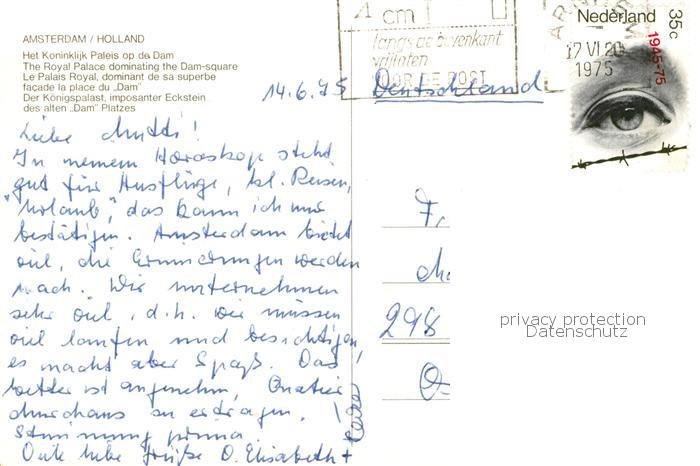 AMSTERDAM / HOLLAND
Het Koninklijk Paleis op de Dam
The Royal Palace dominating the Dam-square
Le Palais Royal, dominant de sa superbe
façade la place du „Dam"
Der Königspalast, imposanter Eckstein
des alten „Dam" Platzes
4 cm
langs de bovenkant
vrijlaten
VOOR DE POST
17 VI 20
1975
Nederland
35c
1945-75
14.6.75
Deutschland
Liebe Mutti!
In meinem Horoskop steht
gut für Ausflüge, kl. Reisen,
"Urlaub", das kann ich nur
bestätigen. Amsterdam bietet
viel, die Erinnerungen werden
wach. Wir unternehmen
sehr viel, d.h. wir müssen
viel laufen und besichtigen,
es macht aber Spaß. Das
Wetter ist angenehm, Quartier
durchaus zu ertragen,
Stimmung prima.
Viele liebe Grüße D. Elisabeth +
298
privacy protection
Datenschutz